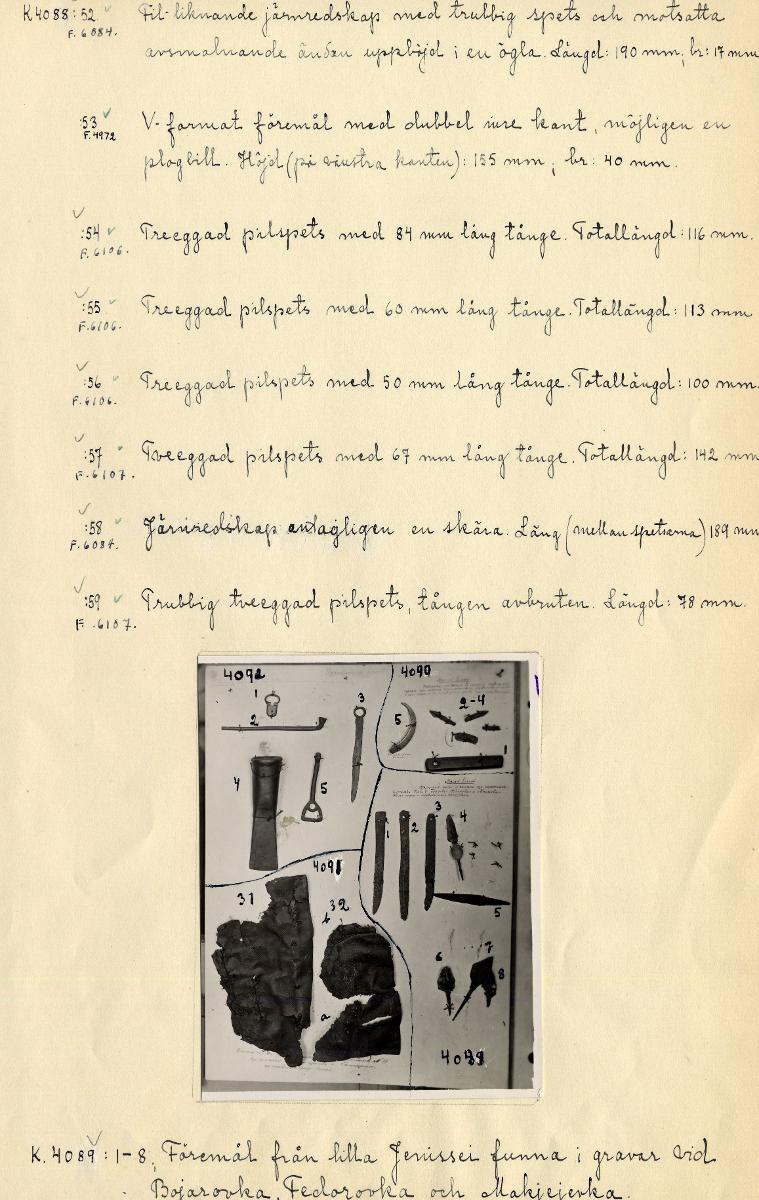 K4088:52 ✓ Fil-liknande järnredskap med trubbig spets och motsatta
F.6084.
avsmalnande ändan uppböjd i en ögla. Längd: 190 mm; br: 17 mm
:53 ✓ V-format föremål med dubbel inre kant, möjligen en
F.4972
plogbill. Höjd (på vänstra kanten): 155 mm; br: 40 mm.
:54 ✓ Treeggad pilspets med 84 mm lång tånge. Totallängd: 116 mm.
F.6106.
:55 Treeggad pilspets med 60 mm lång tånge. Totallängd: 113 mm
F.6106.
:56 Treeggad pilspets med 50 mm lång tånge. Totallängd: 100 mm.
F.6106.
:57 Tveeggad pilspets med 67 mm lång tånge. Totallängd: 142 mm
F.6107.
:58 Järnredskap antagligen en skära. Läng (mellan spetsarna) 189 mm
F.6084.
:59 ✓ Trubbig tveeggad pilspets, tången avbruten. Längd: 78 mm.
F.6107.
4092
1
2
3
4
5
4090
5
2-4
1
1
2
3
4
5
6
7
8
4091
31
32
b
a
K.4089:1-8, Föremål från lilla Jenissei funna i gravar vid
Bojarovka, Fedorovka och Makjejevka.